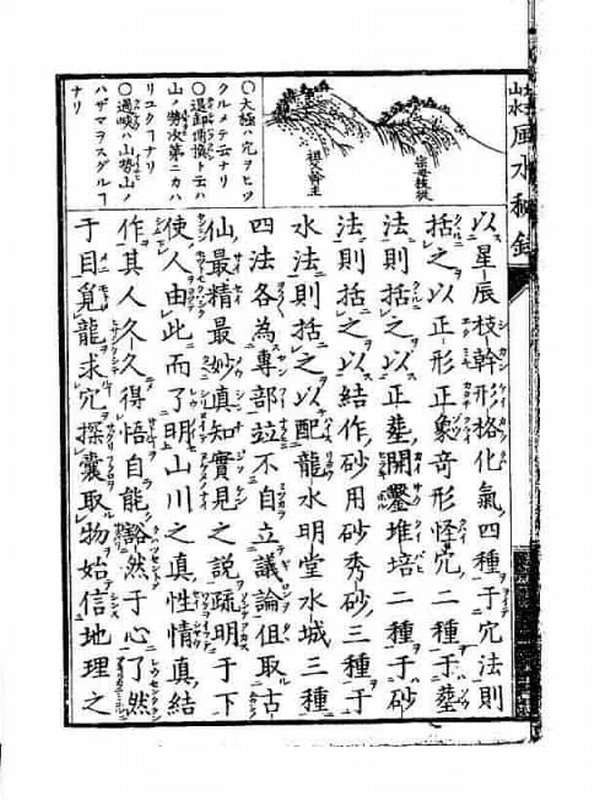 風水秘録
祖父幹主
宗母枝從
〇大極ハ穴ヲヒツ
クルメテ云ナリ
〇退卸傳換ト云ハ
山ノ勢次第ニカハ
リユクヿナリ
〇過峽ハ山勢山ノ
ハザマヲスグルヿ
ナリ
以星辰枝幹形格化氣四種于穴法則
括之以正形正象奇形怪穴二種于葬
法則括之以正葬開鑿堆培二種于砂
法則括之以結作砂用砂秀砂三種于
水法則括之以配龍水明堂水城三種
四法各為專部竝不自立議論但取古
仙最精最妙真知實見之說疏明于下
使人由此而了明山川之真性情真結
作其人久久得悟自能豁然于心了然
于目覓龍求穴探囊取物始信地理之